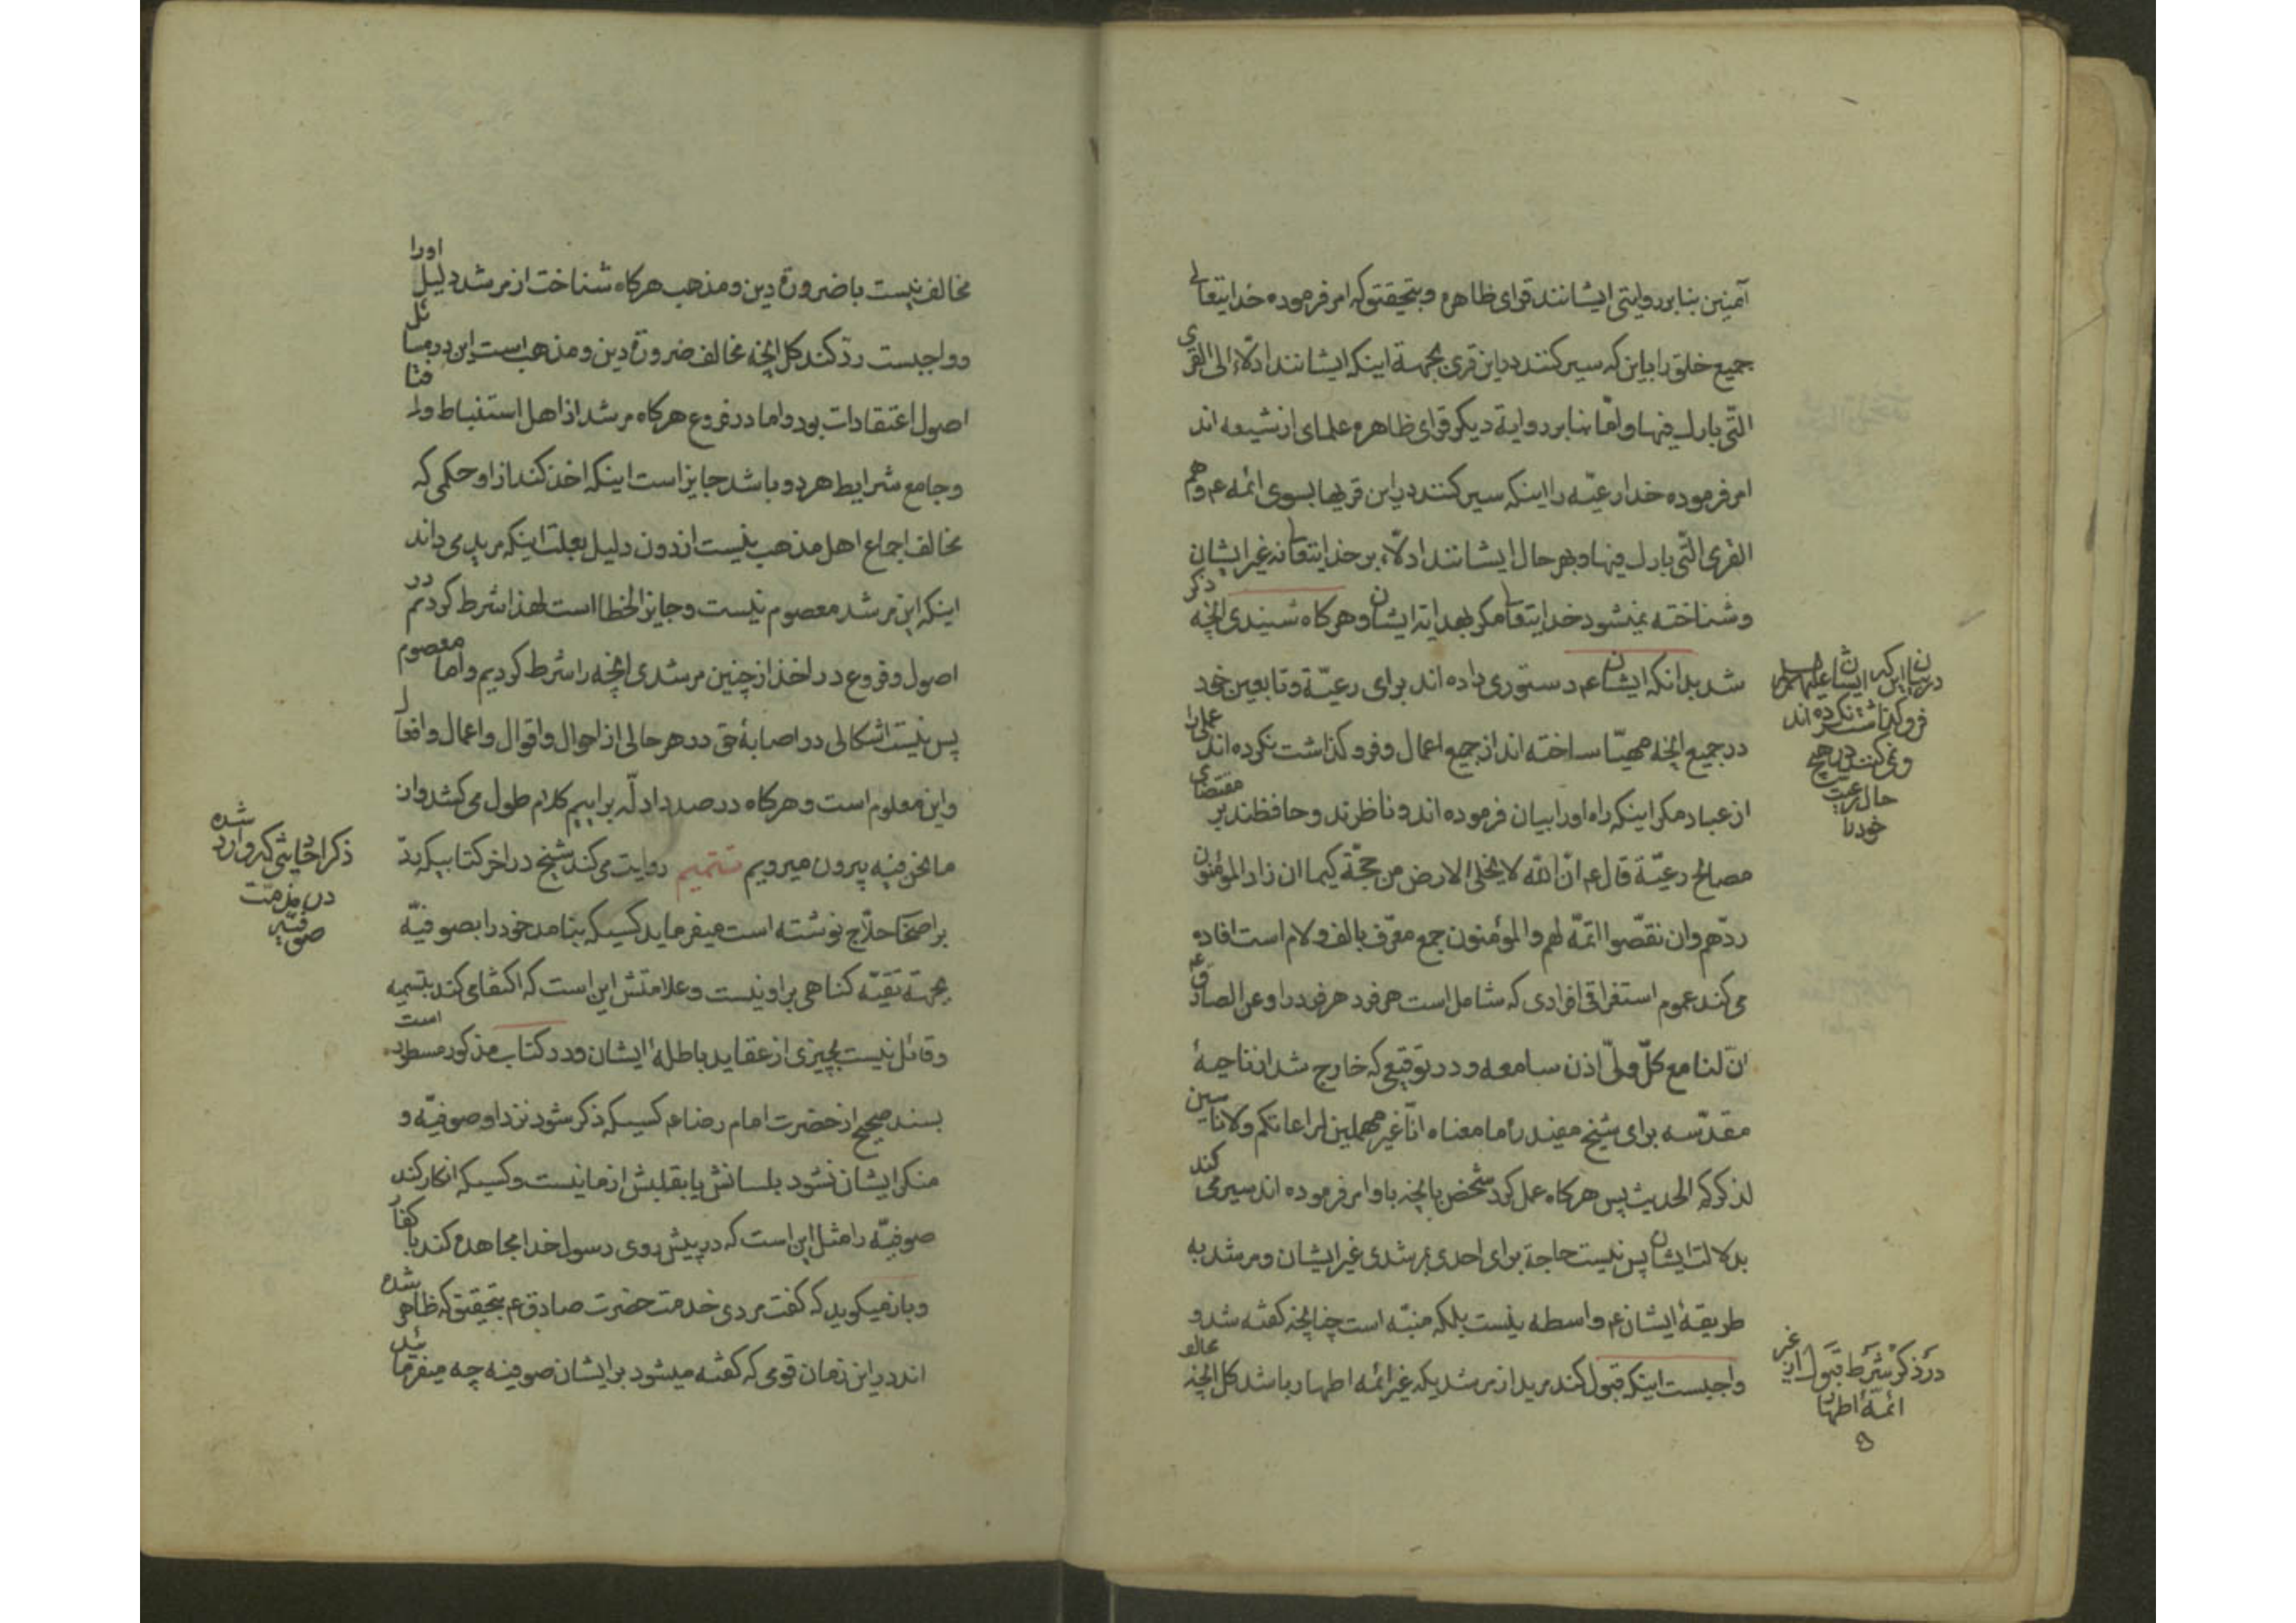 آمنین بنا بر روایتی ایشانند قرای ظاهره و بتحقیق که امر فرموده خدایتعالی
جمیع خلق را باین که سیر کنند در این قری بجهة اینکه ایشانند ادلّاء الی القری
التّی بارك فیها و امّا بنا بر روایة دیگر قرای ظاهره علمای از شیعه اند
امر فرموده خدا رعیّه را اینکه سیر کنند در این قریها بسوی ائمه ع و هم
القری التّی بارك فیها و بهر حال ایشانند ادلّاء بر خدایتعا نه غیر ایشان
و شناخته نمیشود خدایتعا مکر بهدایة ایشان و هر کاه شنیدی انچه ذکر
شد بدانکه ایشان ع دستوری داده اند برای رعیّة و تابعین خود
در جمیع انچه مهیّا ساخته اند از جمیع اعمال و فروکذاشت نکرده اند عملی را
از عباد مکر اینکه راه اورا بیان فرموده اند و ناظرند و حافظند بر مقتضای
مصالح رعیّة قال ع انّ الله لا یخلی الارض من حجّة کیما ان زاد المؤمنون
ردّهم وان نقصّوا اتمّه لهم والمؤمنون جمع معرّف بالف و لام است افاده
می کند عموم استغراقی افرادی که شامل است هر فرد هر فردرا و عن الصادق ع
انّ لنا مع کلّ ولیّ اذن سامعه و در توقیعی که خارج شد از ناحیهٔ
مقدّسه برای شیخ مفید ره ما معناه انّا غیر مهملین لمراعاتکم ولا ناسین
لذکرکم الحدیث پس هر کاه عمل کرد شخص بانچه باو امر فرموده اند سیر می کند
بدلالت ایشان پس نیست حاجة برای احدی بمرشدی غیر ایشان و مرشد به
طریقهٔ ایشان ع واسطه نیست بلکه منبّه است چنانچه کفته شد و
واجبست اینکه قبول کند مرید از مرشدیکه غیر ائمه اطهار باشد کل انچه
در بیان این که ایشان علیهم السلام
فروکذاشت نکرده اند
و نمی کنند در هیچ
حال رعیت
خودرا
در ذکر شرط قبول از غیر
ائمهٔ اطهار
مخالف نیست با ضرورة دین و مذهب هر کاه شناخت از مرشد دلیل اورا
و واجبست ردّ کند کل انچه مخالف ضرورة دین و مذهب است این در مسائل
اصول اعتقادات بود و اما در فروع هر کاه مرشد از اهل استنباط و افتا
و جامع شرایط هر دو باشد جایز است اینکه اخذ کند از او حکمی که
مخالف اجماع اهل مذهب نیست از دون دلیل بعلت اینکه مرید می داند
اینکه این مرشد معصوم نیست و جایز الخطا است لهذا شرط کردیم در
اصول و فروع در اخذ از چنین مرشدی انچه را شرط کردیم و اما معصوم
پس نیست اشکالی در اصابهٔ حق در هر حالی از احوال و اقوال و اعمال و افعال
و این معلوم است و هر کاه در صدد ادلّه برایم کلام طول می کشد و از
ما نحن فیه بیرون میرویم تتمیم روایت می کند شیخ در اخر کتابیکه بردّ
بر اصحاب حلّاج نوشته است میفرماید کسیکه بنامد خودرا بصوفیّه
بجهة تقیّه کناهی بر او نیست و علامتش این است که اکتفای کند بتسمیه
و قائل نیست بچیزی از عقاید باطلهٔ ایشان و در کتاب مذکور مسطور است
بسند صحیح از حضرت امام رضا ع کسیکه ذکر شود نزد او صوفیّه و
منکر ایشان نشود بلسانش یا بقلبش از ما نیست و کسیکه انکار کند
صوفیّه را مثل این است که در پیش روی رسول خدا مجاهده کند با کفار
و باز میکوید که کفت مردی خدمت حضرت صادق ع بتحقیق که ظاهر شده
اند در این زمان قومی که کفته میشود بر ایشان صوفیه چه میفرمائید
ذکر احادیثی که وارد شده
در مذمّت
صوفیّه